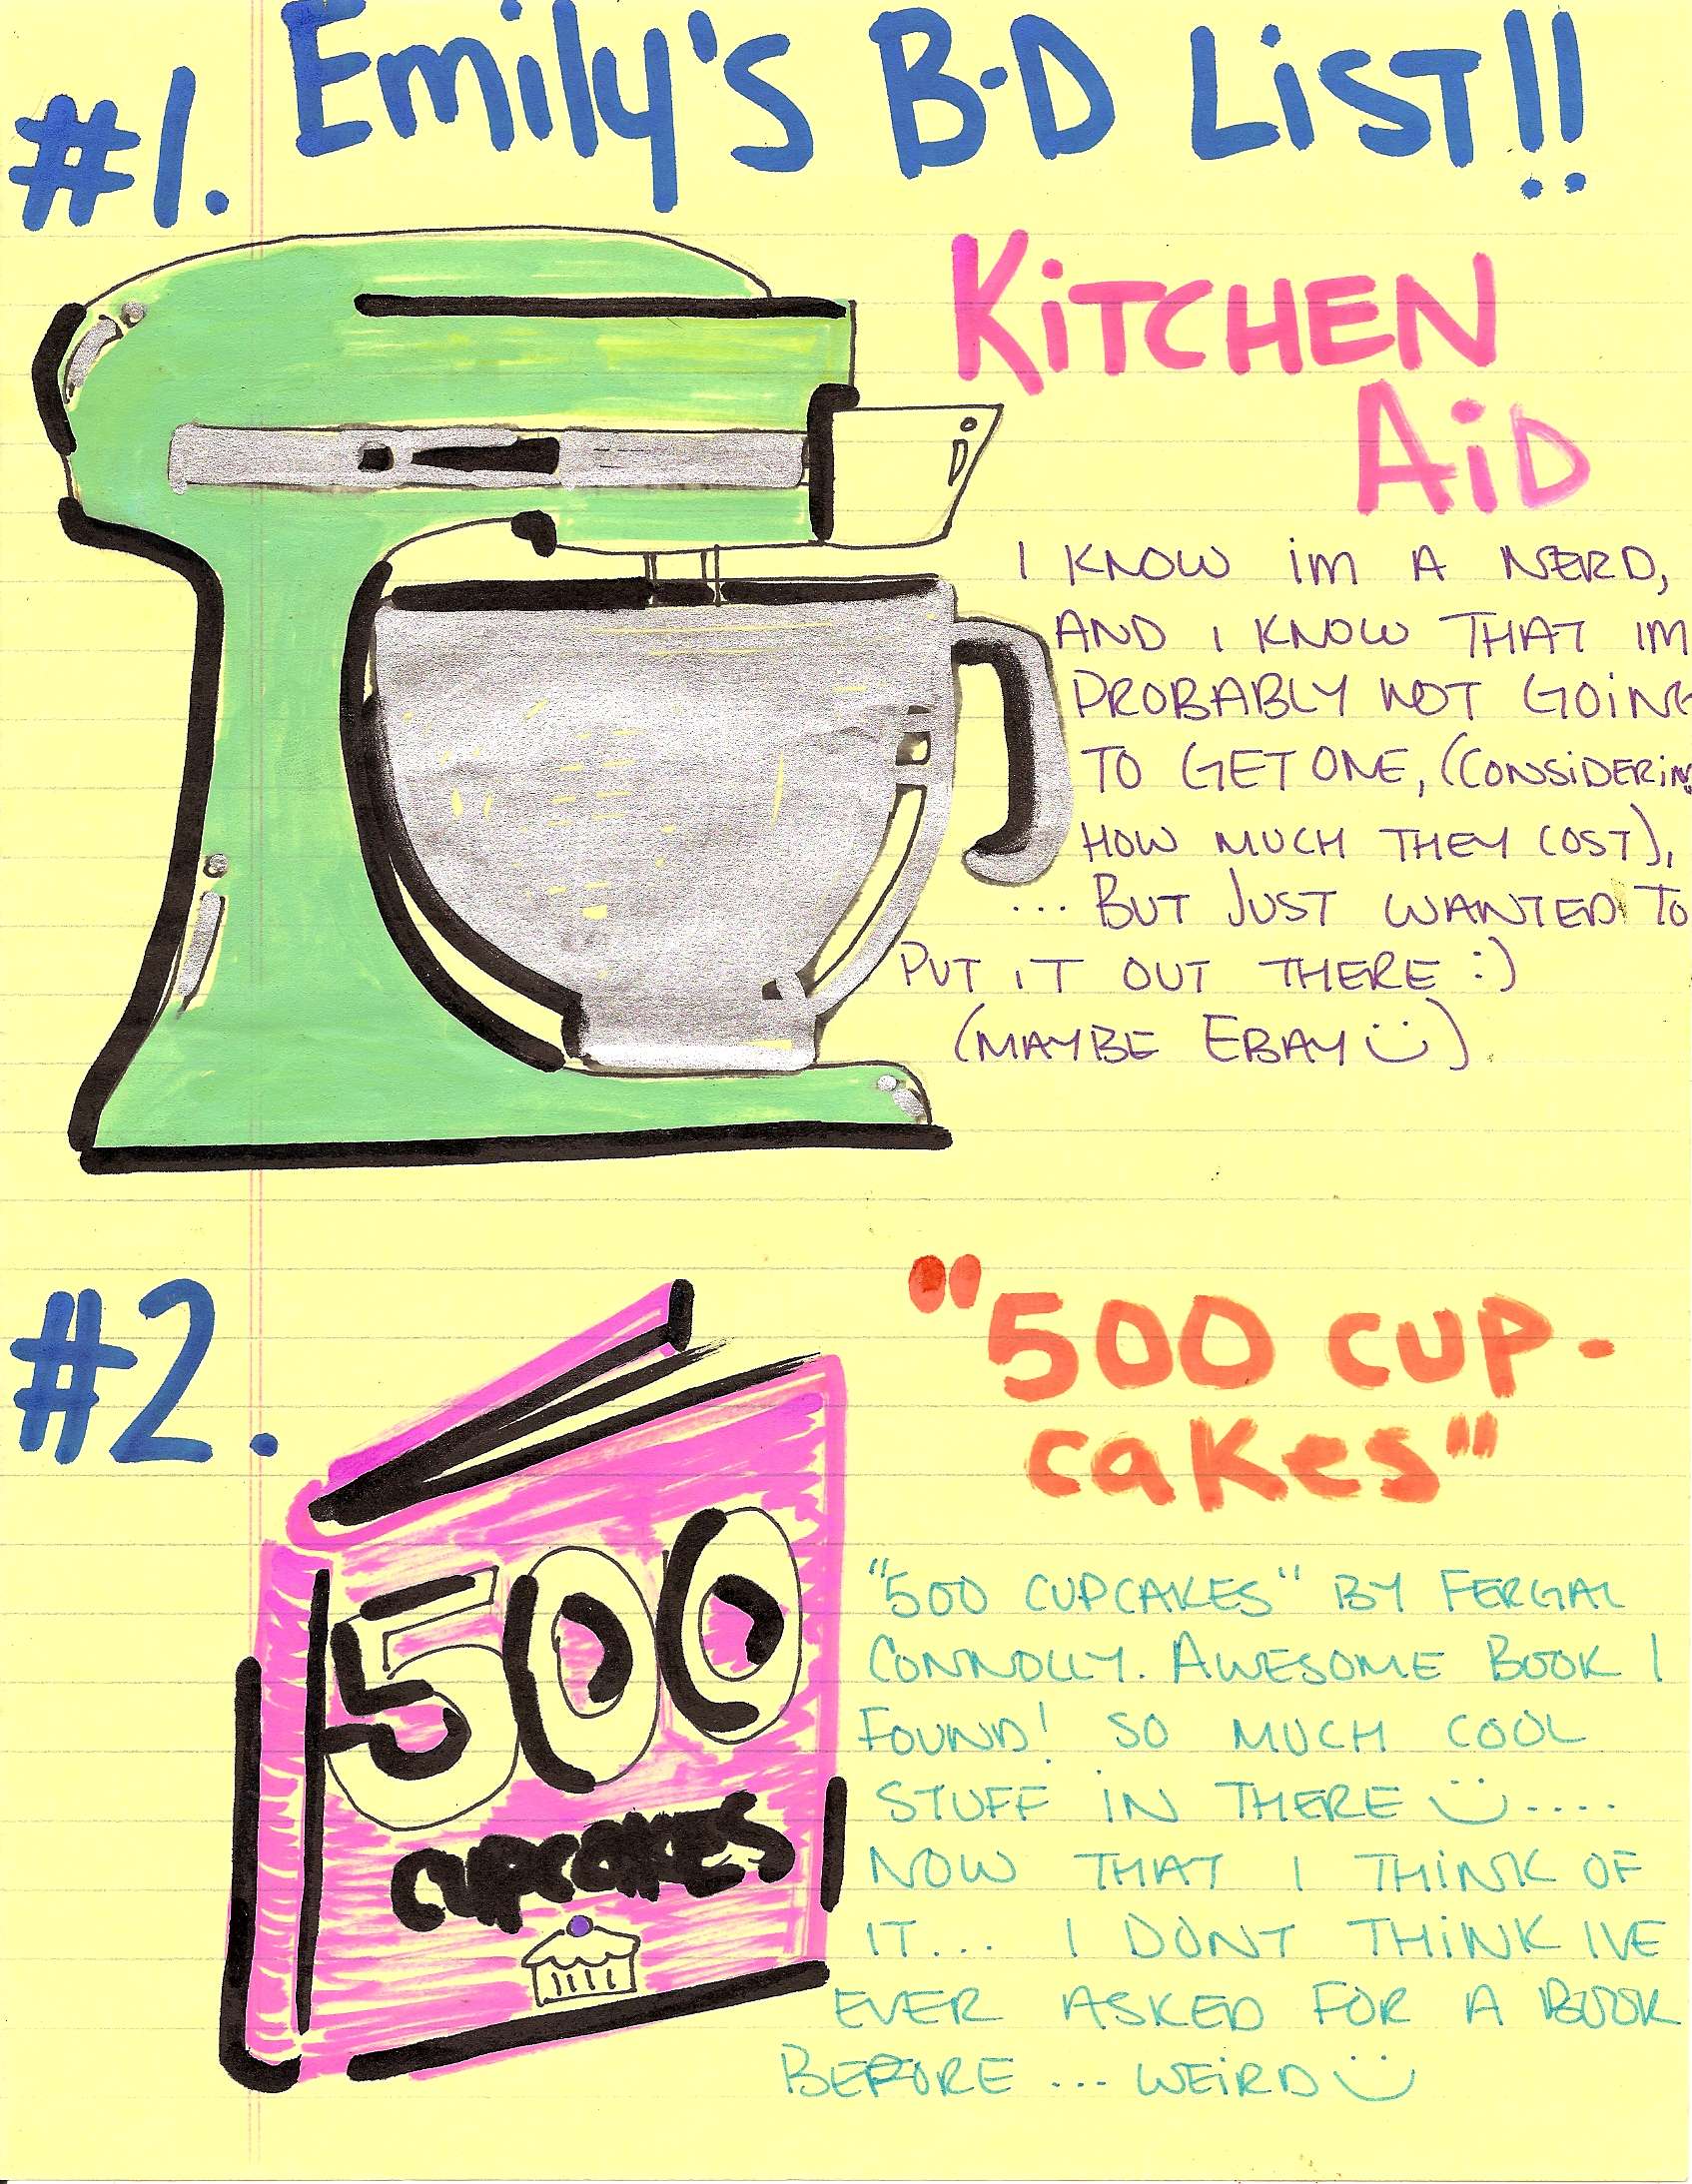 Emily's B-D LiST!!
#1.
KiTCHEN
AiD
I KNOW iM A NERD,
AND I KNOW THAT IM
PROBABLY NOT GOiNG
TO GET ONE, (CONSiDERiNG
HOW MUCH THEY COST),
... BUT JUST WANTED TO
PUT IT OUT THERE :)
(MAYBE EBAY ツ).
#2.
"500 CUP-
cakes"
500
CUPCAKES
"500 CUPCAKES" BY FERGAL
CONNOLLY. AWESOME BOOK I
FOUND! SO MUCH COOL
STUFF iN THERE ツ....
NOW THAT I THiNK OF
IT... I DONT THiNK IVE
EVER ASKED FOR A BOOK
BEFORE ... WEiRD ツ